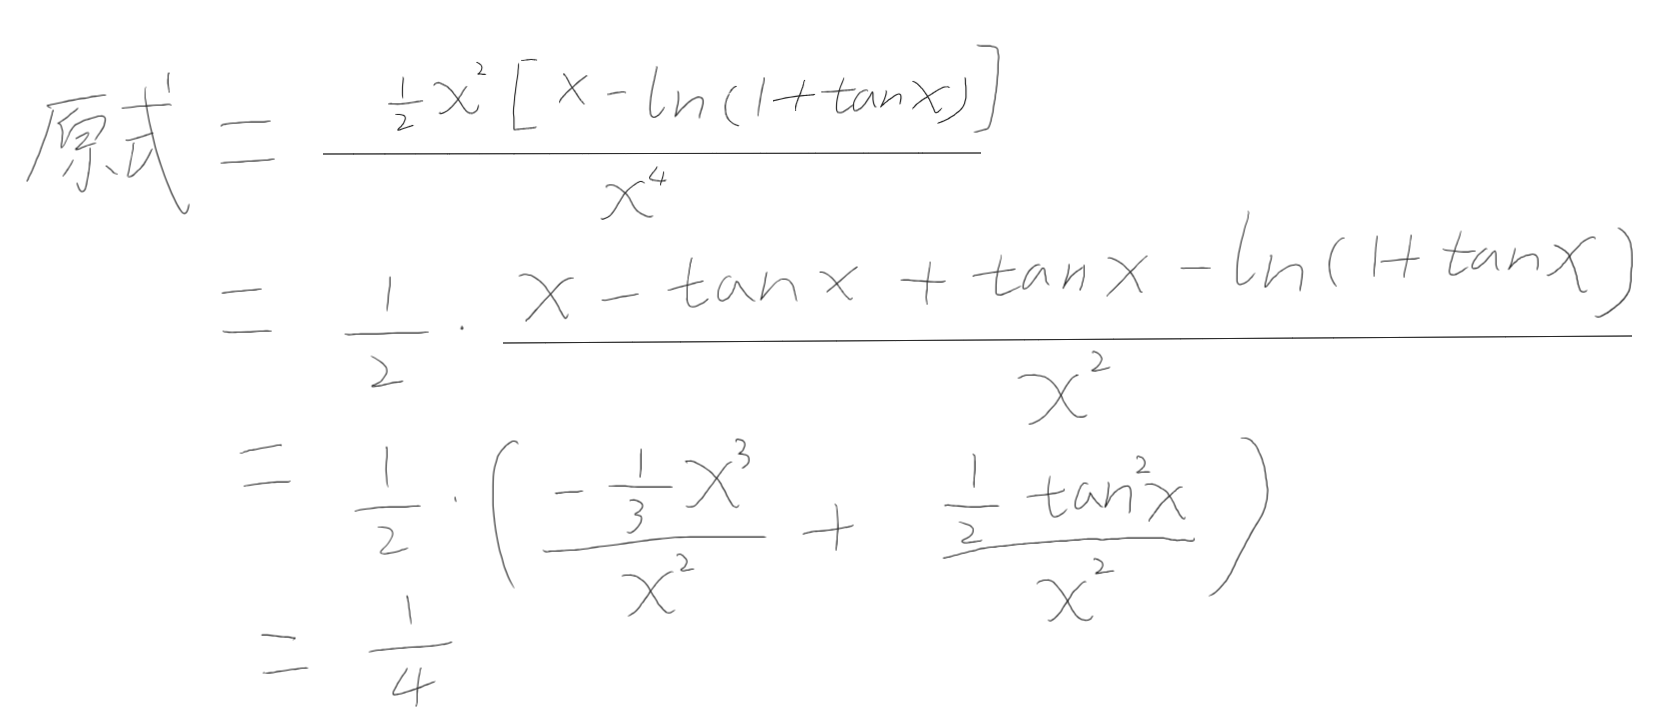 原式 = \frac{\frac{1}{2}x^2[x-\ln(1+\tan x)]}{x^4}
= \frac{1}{2} \cdot \frac{x-\tan x+\tan x-\ln(1+\tan x)}{x^2}
= \frac{1}{2} \cdot \left(\frac{-\frac{1}{3}x^3}{x^2}+\frac{\frac{1}{2}\tan^2 x}{x^2}\right)
= \frac{1}{4}